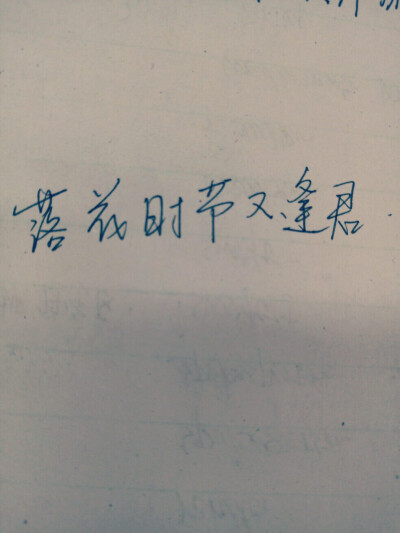 落花时节又逢君